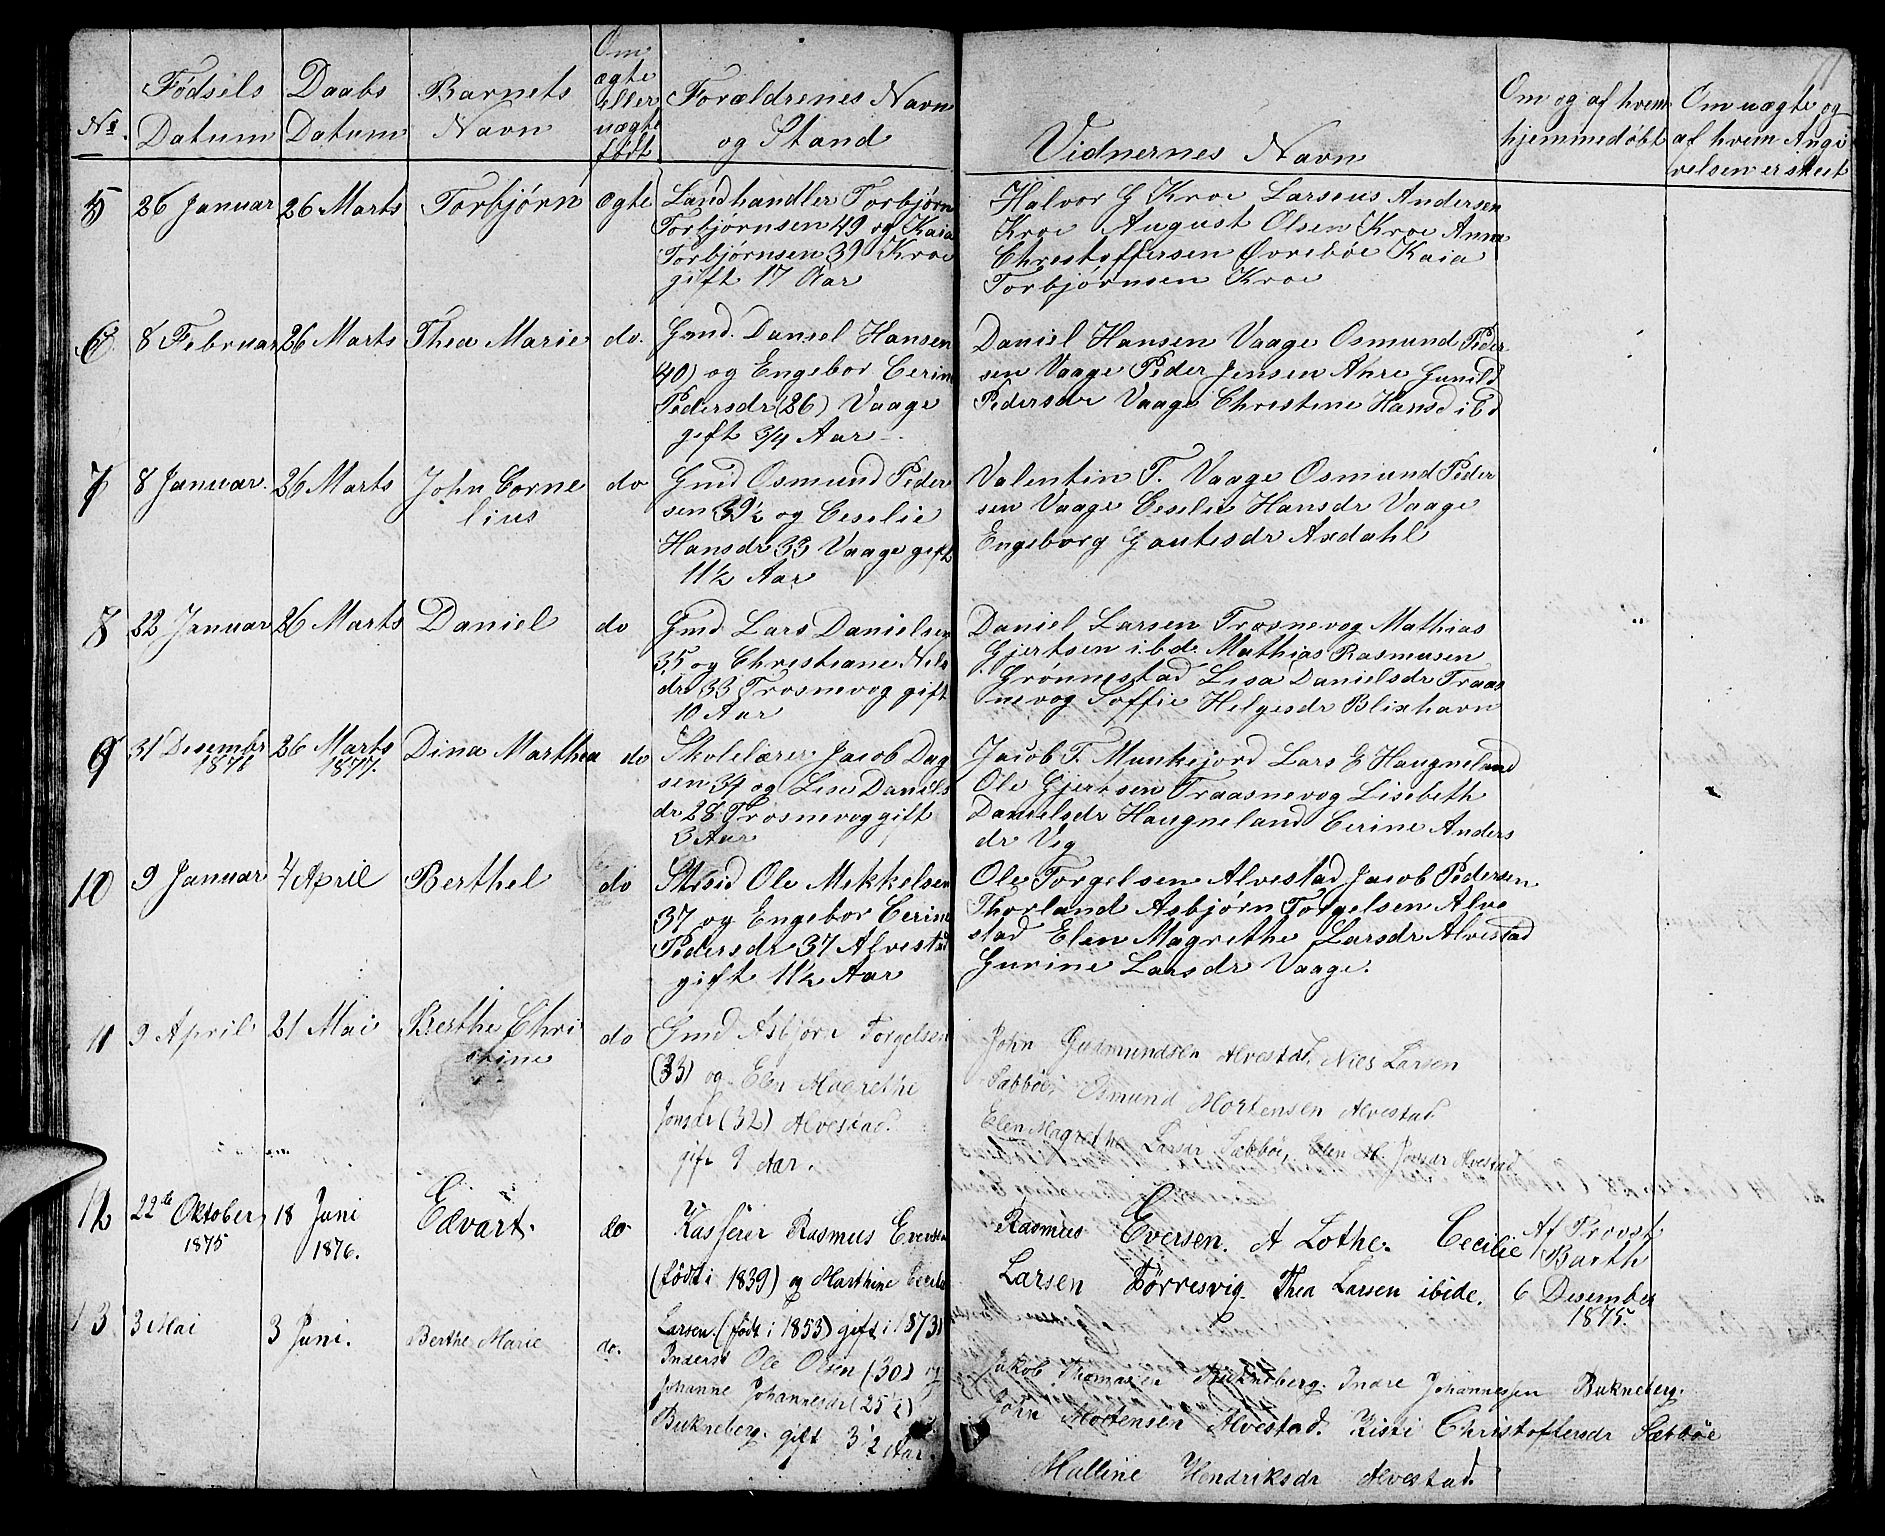 71
No. Fødsels Datum Daabs Datum Barnets Navn Om ægte eller uægte født Forældrenes Navn og Stand Vidnernes Navn Om og af hvem hjemmedøbt Om uægte og af hvem Angivelsen er skeet
5 26 Januar 26 Marts Torbjørn ægte Landhandler Torbjørn
Torbjørnsen 49 og Kaia
Torbjørnsen 39 Kroe
gift 17 Aar
Halvor G Kroe Larseus Andersen
Kroe August Olsen Kroe Anna
Chrestoffersen Øvrebøe Kaia
Torbjørnsen Kroe
6 8 Februar 26 Marts Thea Marie do. Gmd. Daniel Hansen
40) og Engebor Cerine
Pedersdr (26) Vaage
gift 3/4 Aar
Daniel Hansen Vaage Osmund Peder
sen Vaage Peder Jensen Ahre Gunild
Pedersdr Vaage Christine Hansd ibd
7 8 Januar 26 Marts John Corne
lius do Gmd Osmund Peder
sen 39½ og Ceselie
Hansdr 33 Vaage gift
11½ Aar
Valentin T. Vaage Osmund Peder
sen Vaage Ceselie Hansdr Vaage
Engeborg Gautesdr Axdahl
8 22 Januar 26 Marts Daniel do Gmd Lars Danielsen
35 og Christiane Nils
dr 33 Trosnevog gift
10 Aar
Daniel Larsen Trosnevog Mathias
Gjertsen ibd. Mathias Rasmusen
Grønnestad Lisa Danielsdr Traas
nevog Soffie Helgesdr Blixhavn
9 31 Desembr
1876 26 Marts
1877. Dina Marthea do Skolelærer Jacob Dag
sen 34 og Lise Daniels
dr 28 Trosnevog gift
3 Aar
Jacob T. Munkejord Lars G Haugneland
Ole Gjertsen Traasnevog Lisebeth
Danielsdr Haugneland Cerine Anders
dr Vig
10 9 Januar 4 April Berthel do Ole Mikkelsen
37 og Engebor Cerine
Pedersdr 37 Alvestad
gift 11½ Aar
Ole Torgelsen Alvestad Jacob Pedersen
Thorland Asbjørn Torgelsen Alve
stad Elen Magrethe Larsdr Alvestad
Gurine Larsdr Vaage.
11 9 April 21 Mai Berthe Chri
stine do Gmd Asbjørn Torgelsen
(33) og Elen Magrethe
Jonsdr (32) Alvestad.
gift 9 Aar.
John Gudmundsen Alvestad, Niels Larsen
Sæbbøe, Osmund Mortensen Alvestad
Elen Magrethe Larsdr Sæbbøe, Elen M. Jonsdr Alvestad
12 22de Oktober
1875 18 Juni
1876. Edvart. do Kasserer Rasmus Eversen
(født i 1839) og Marthine Cecilie
Larsen. (født i 1853) gift i 1873.
Rasmus Eversen. A Lothe. Cecilie
Larsen Førresvig. Thea Larsen ibide.
Af Provst
Barth
6 Desember
1875.
13 3 Mai 3 Juni. Berthe Marie do. Inderst Ole Olsen (30) og
Johanne Johannesdr (25½)
Bukneberg. gift 3½ Aar.
Jakob Thomasen Bukneberg. Indre Johannessen Bukneberg.
John Mortensen Alvestad. Kisti Christoffersdr Sæbbøe
Malline Hendriksdr Alvestad.